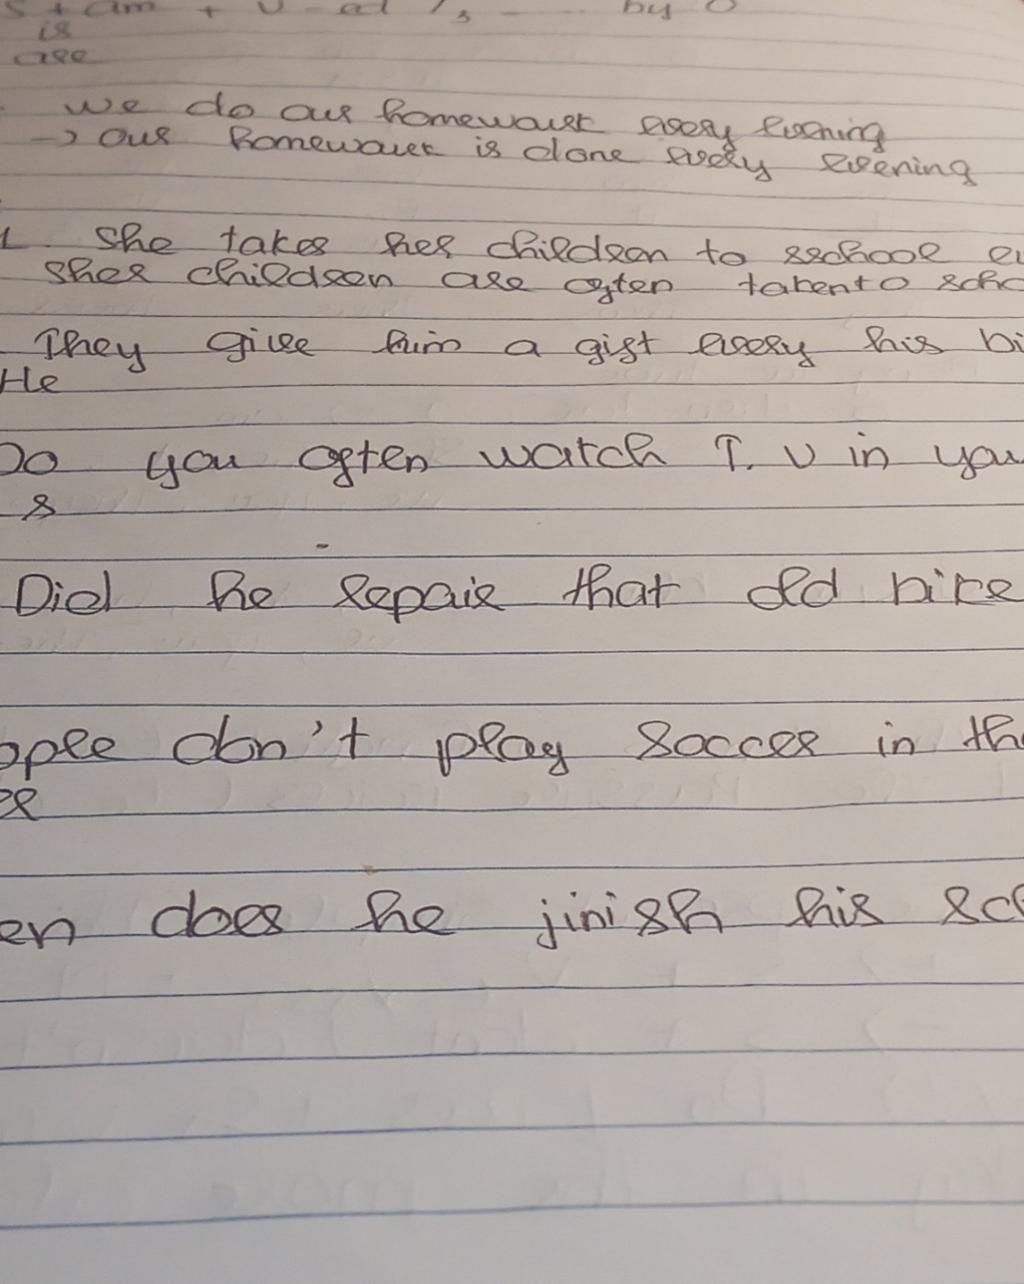 S + am + V-ed / 3 ... by O
is
are
we do our homework every evening
→ our homework is done every evening
1 she takes her children to sschool
sher children are often taken to
They give him a gift every his
He
Do you often watch T.V in
8
Did he repair that old bike
don't play soccer in
does he jinish his